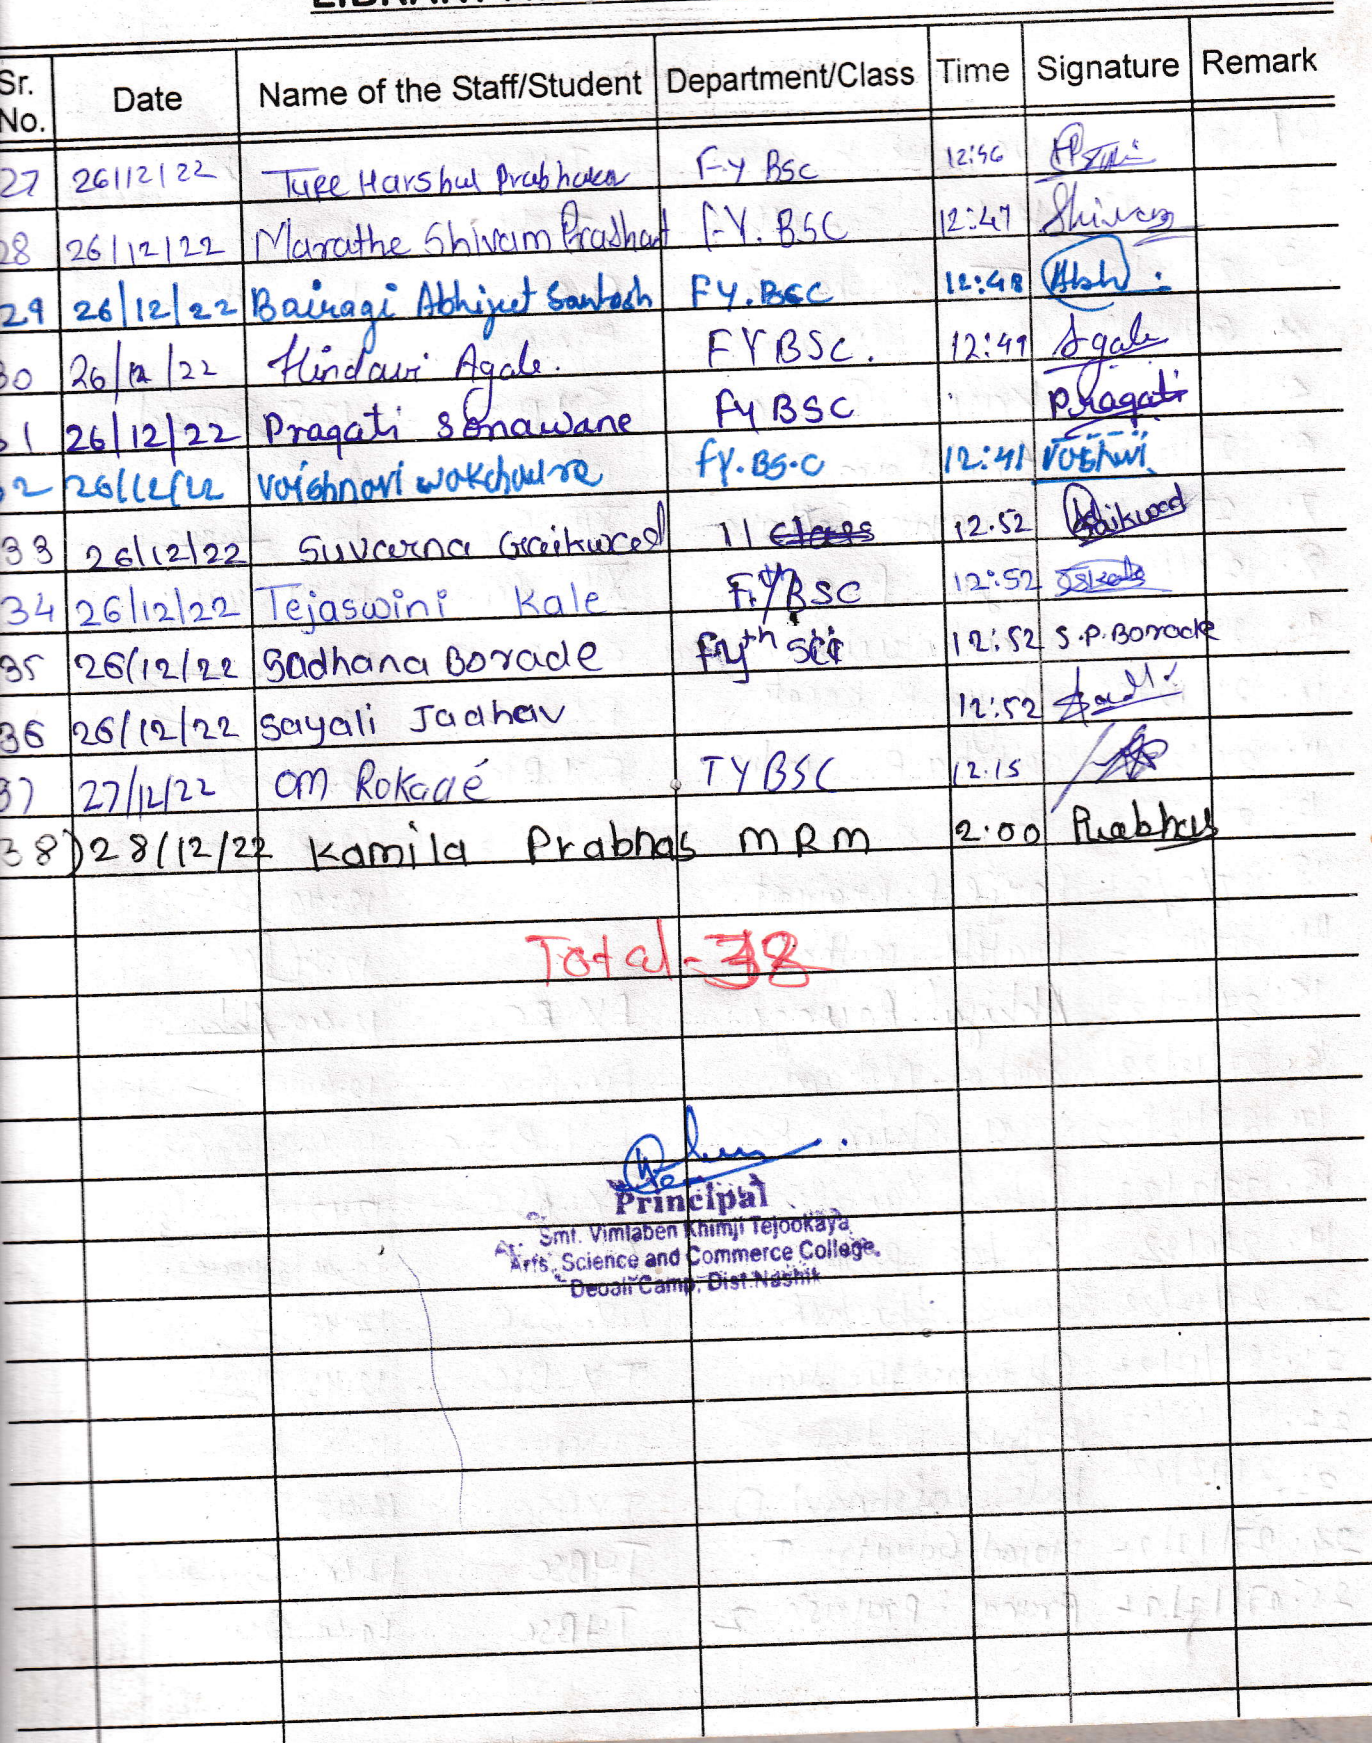 Sr. No. Date Name of the Staff/Student Department/Class Time Signature Remark
27 26/12/22 Tupe Harshul Prabhakar F.y Bsc 12:46
28 26/12/22 Marathe Shivam Prashant F.Y. BSC 12:47 Shivam
29 26/12/22 Bairagi Abhijeet Santosh FY.BSC 12:48 Abh
30 26/12/22 Hindavi Agale. FYBSC. 12:49 Agale
31 26/12/22 Pragati Sonawane FyBSC Pragati
32 26/12/22 Vaishnavi wakchaure FY.BS.C 12:41
33 26/12/22 Suvarna Gaikwad 11 class 12.52 Gaikwad
34 26/12/22 Tejaswini Kale F.YBSC 12:52
35 26/12/22 Sadhana Borade Fyth Sci 12:52 S.P.Borade
36 26/12/22 Sayali Jadhav 12:52
37 27/12/22 OM Rokade TYBSC 12.15
38) 28/12/22 Kamila Prabhas MRM 2:00 Prabhas
Total - 38
Principal
Smt. Vimlaben Khimji Tejookaya
Arts, Science and Commerce College,
Deoali Camp, Dist.Nashik